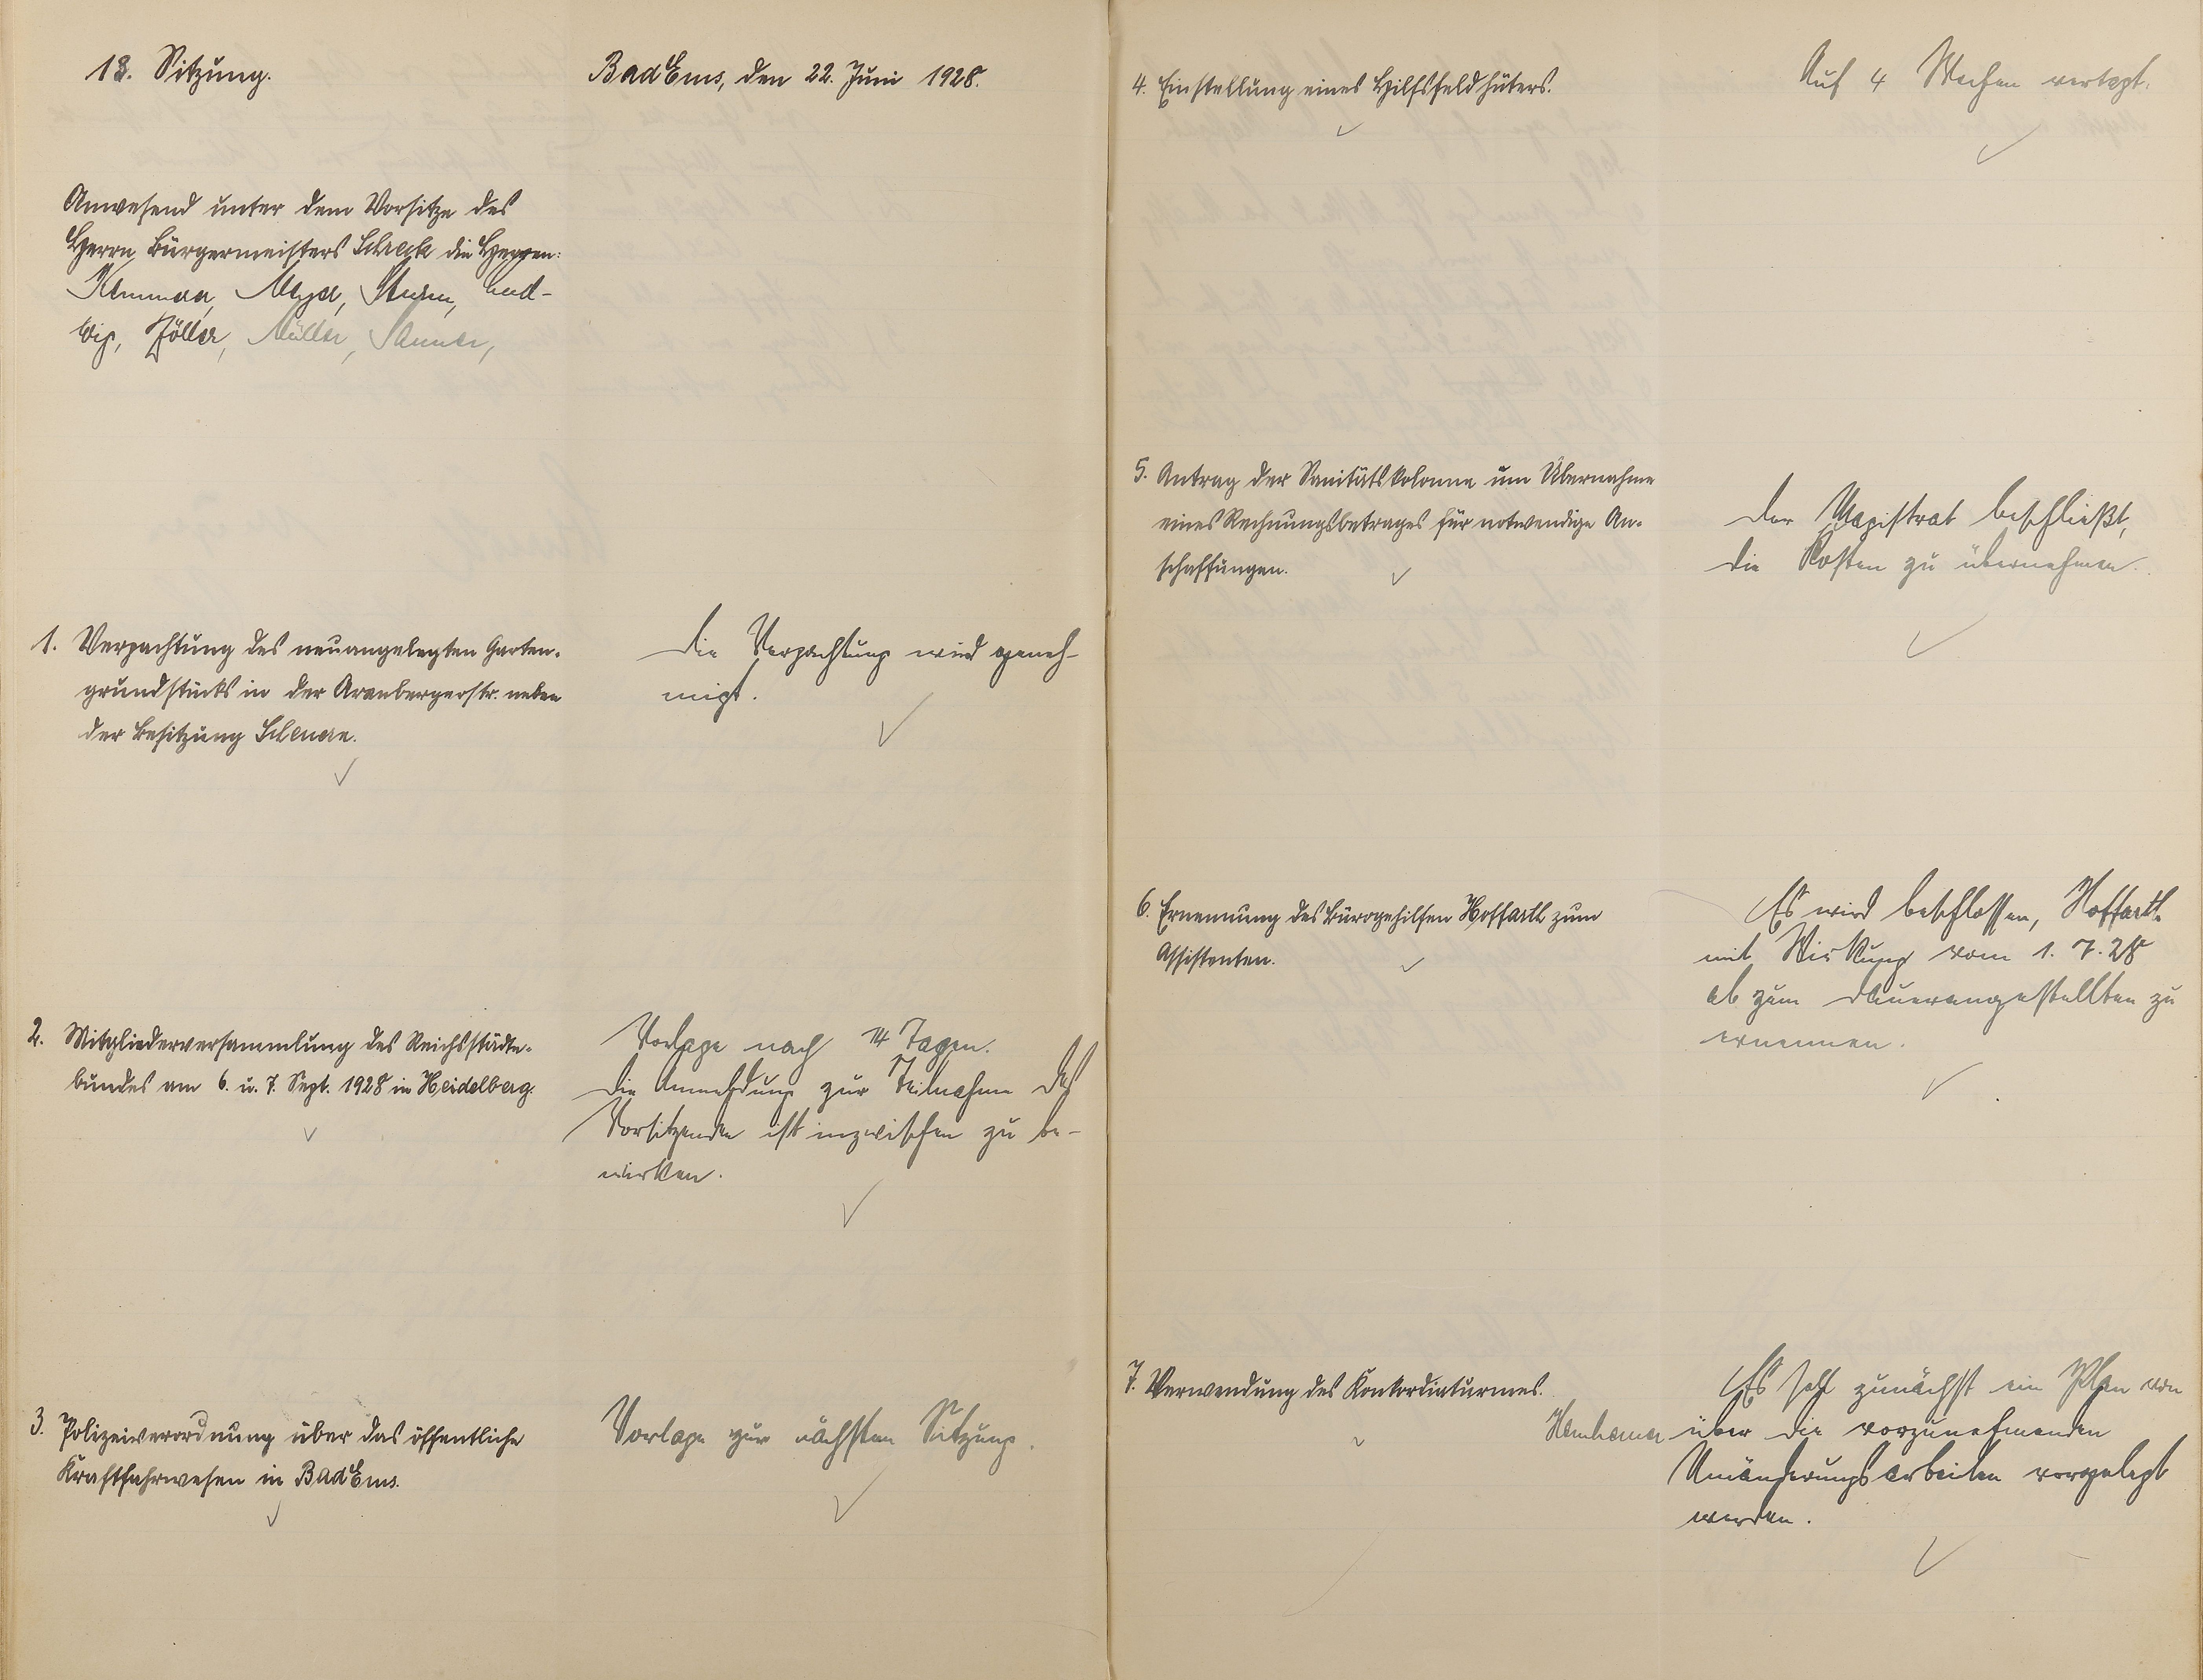 18. Sitzung.
Bad Ems, den 22. Juni 1928.
Anwesend unter dem Vorsitze des
Herrn Bürgermeisters Schreck die Herren:
Meyer, Lud-
wig, Zöller, Müller,
1. Verpachtung des neuangelegten Garten-
grundstücks in der Arenbergerstr. neben
der Besitzung
Die Verpachtung wird geneh-
migt.
2. Mitgliederversammlung des Reichsstädte-
bundes am 6. u. 7. Sept. 1928 in Heidelberg.
Vorlage nach 14 Tagen.
Die Anmeldung zur Teilnahme des
Vorsitzenden ist inzwischen zu be-
wirken.
3. Polizeiverordnung über das öffentliche
Kraftfahrwesen in Bad Ems.
Vorlage zur nächsten Sitzung.
4. Einstellung eines Hilfsfeldhüters.
Auf 4 Wochen vertagt.
5. Antrag der Sanitätskolonne um Übernahme
eines Rechnungsbetrages für notwendige An-
schaffungen.
Der Magistrat beschließt,
die Kosten zu übernehmen.
6. Ernennung des Bürogehilfen Hoffarth zum
Assistenten.
Es wird beschlossen, Hoffarth
mit Wirkung vom 1. 7. 28
ab zum Dauerangestellten zu
ernennen.
7. Verwendung des Konkordiaturmes.
Es soll zunächst ein Plan von
über die vorzunehmenden
Umänderungsarbeiten vorgelegt
werden.